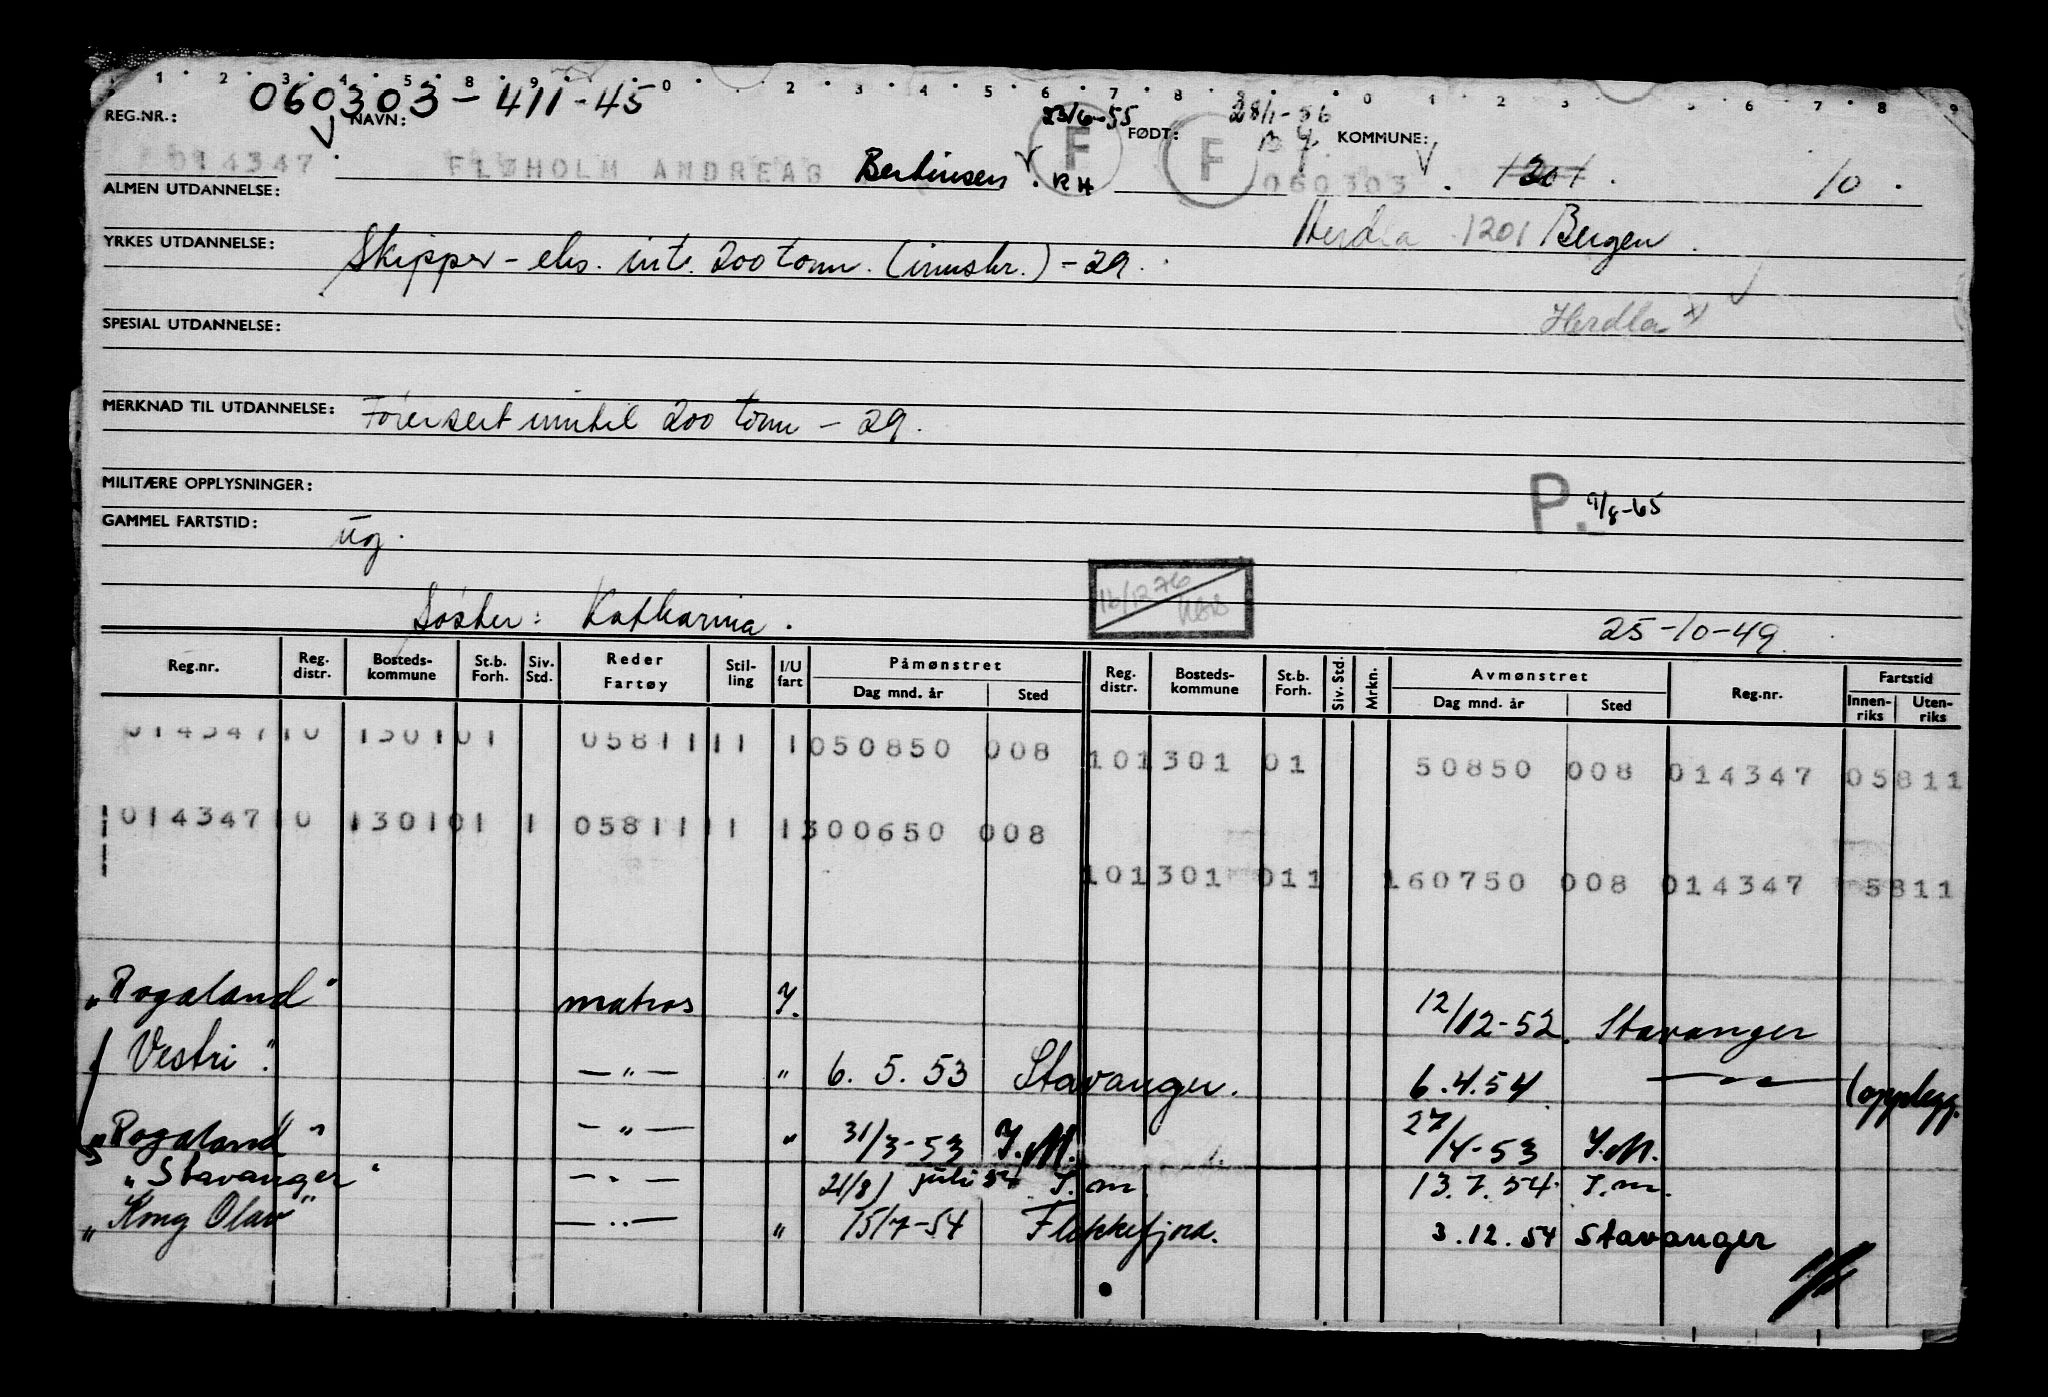 1 2 3 4 5 8 9 0 2 3 4 5 6 7 8 9 0 1 2 3 5 6 7 8 9
060303-411-45
REG.NR.: NAVN: 23/6-55 FØDT: 28/1-56 KOMMUNE:
014347 FLØHOLM ANDREAS Bertinsen F RH F 060303 1201 10
ALMEN UTDANNELSE:
Herdla 1201 Bergen
YRKES UTDANNELSE: Skipper - eks. int. 200 tonn. (innskr.) - 29.
Herdla x)
SPESIAL UTDANNELSE:
MERKNAD TIL UTDANNELSE: Førersert inntil 200 tonn - 29.
MILITÆRE OPPLYSNINGER:
P. 9/8-65
GAMMEL FARTSTID: ug.
16/12 76
Søster: Katharina.
25-10-49.
Reg.nr. Reg. distr. Bosteds-kommune St.b. Forh. Siv. Std. Reder Fartøy Stil-ling I/U fart Påmønstret Dag mnd. år Sted Reg. distr. Bosteds-kommune St.b. Forh. Siv. Std. Mrkn. Avmønstret Dag mnd. år Sted Reg.nr. Fartstid Innen-riks Uten-riks
014347 10 1301 01 05811 11 1 050850 008 10 1301 01 50850 008 014347 05811
014347 10 1301 01 1 05811 11 1 300650 008
10 1301 011 160750 008 014347 5811
"Rogaland" matros I. 12/12-52. Stavanger
Vestri". — " — " 6. 5. 53 Stavanger. 6.4.54 — " — (opplegg.
"Rogaland" — " — " 31/3-53 I.M. 27/4-53 I.M.
"Stavanger" — " — 21/8) juli 54 I.m. 13.7.54. I.m.
"Kong Olav" — " — " 15/7-54 Flekkefjord. 3.12.54 Stavanger